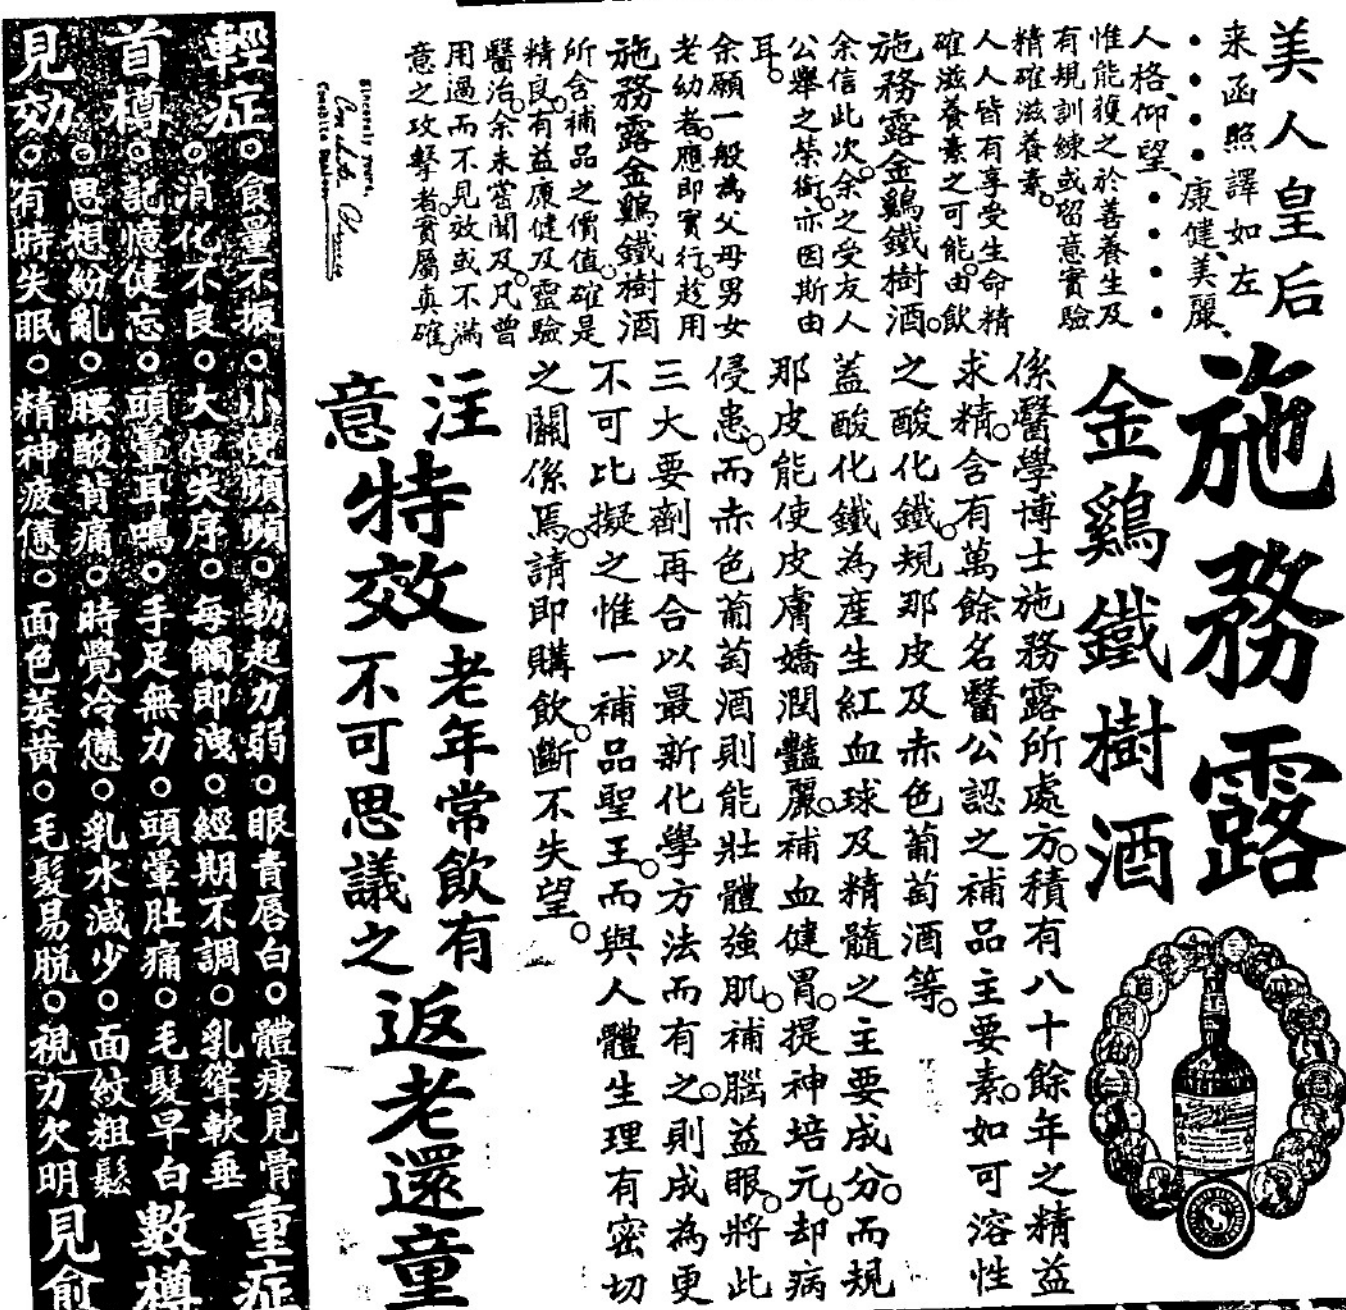 美人皇后
来函照譯如左
康健、美麗、
人格、仰望、
惟能獲之於善養生及
有規訓練或留意實驗
精確滋養素。
人人皆有享受生命精
確滋養素之可能。由飲
施務露金鷄鐵樹酒。
余信此次余之受友人
公舉之榮銜、亦因斯由
耳。
余願一般為父母男女
老幼者。應即實行。趁用
施務露金鷄鐵樹酒
所含補品之價值。確是
精良。有益康健及靈驗
醫治。余未嘗聞及。凡曾
用過而不見效或不滿
意之攻擊者。實屬真確。
Sincerely yours,
施務露
金鷄鐵樹酒
係醫學博士施務露所處方。積有八十餘年之精益
求精。含有萬餘名醫公認之補品主要素。如可溶性
之酸化鐵。規那皮及赤色葡萄酒等。
蓋酸化鐵為產生紅血球及精髓之主要成分。而規
那皮能使皮膚嬌潤豔麗。補血健胃。提神培元。却病
侵患。而赤色葡萄酒則能壯體強肌。補腦益眼。將此
三大要劑再合以最新化學方法而有之。則成為更
不可比擬之惟一補品聖王。而與人體生理有密切
之關係焉。請即購飲。斷不失望。
注意
特效
老年常飲有
不可思議之
返老還童
輕症
首樽
見効
○食量不振○小便頻頻○勃起力弱○眼青唇白○體瘦見骨
○消化不良○大便失序○每觸即洩○經期不調○乳聳軟垂
○記憶健忘○頭暈耳鳴○手足無力○頭暈肚痛○毛髮早白
○思想紛亂○腰酸背痛○時覺冷憊○乳水減少○面紋粗鬆
○有時失眠○精神疲憊○面色萎黃○毛髮易脫○視力欠明
重症
數樽
見愈